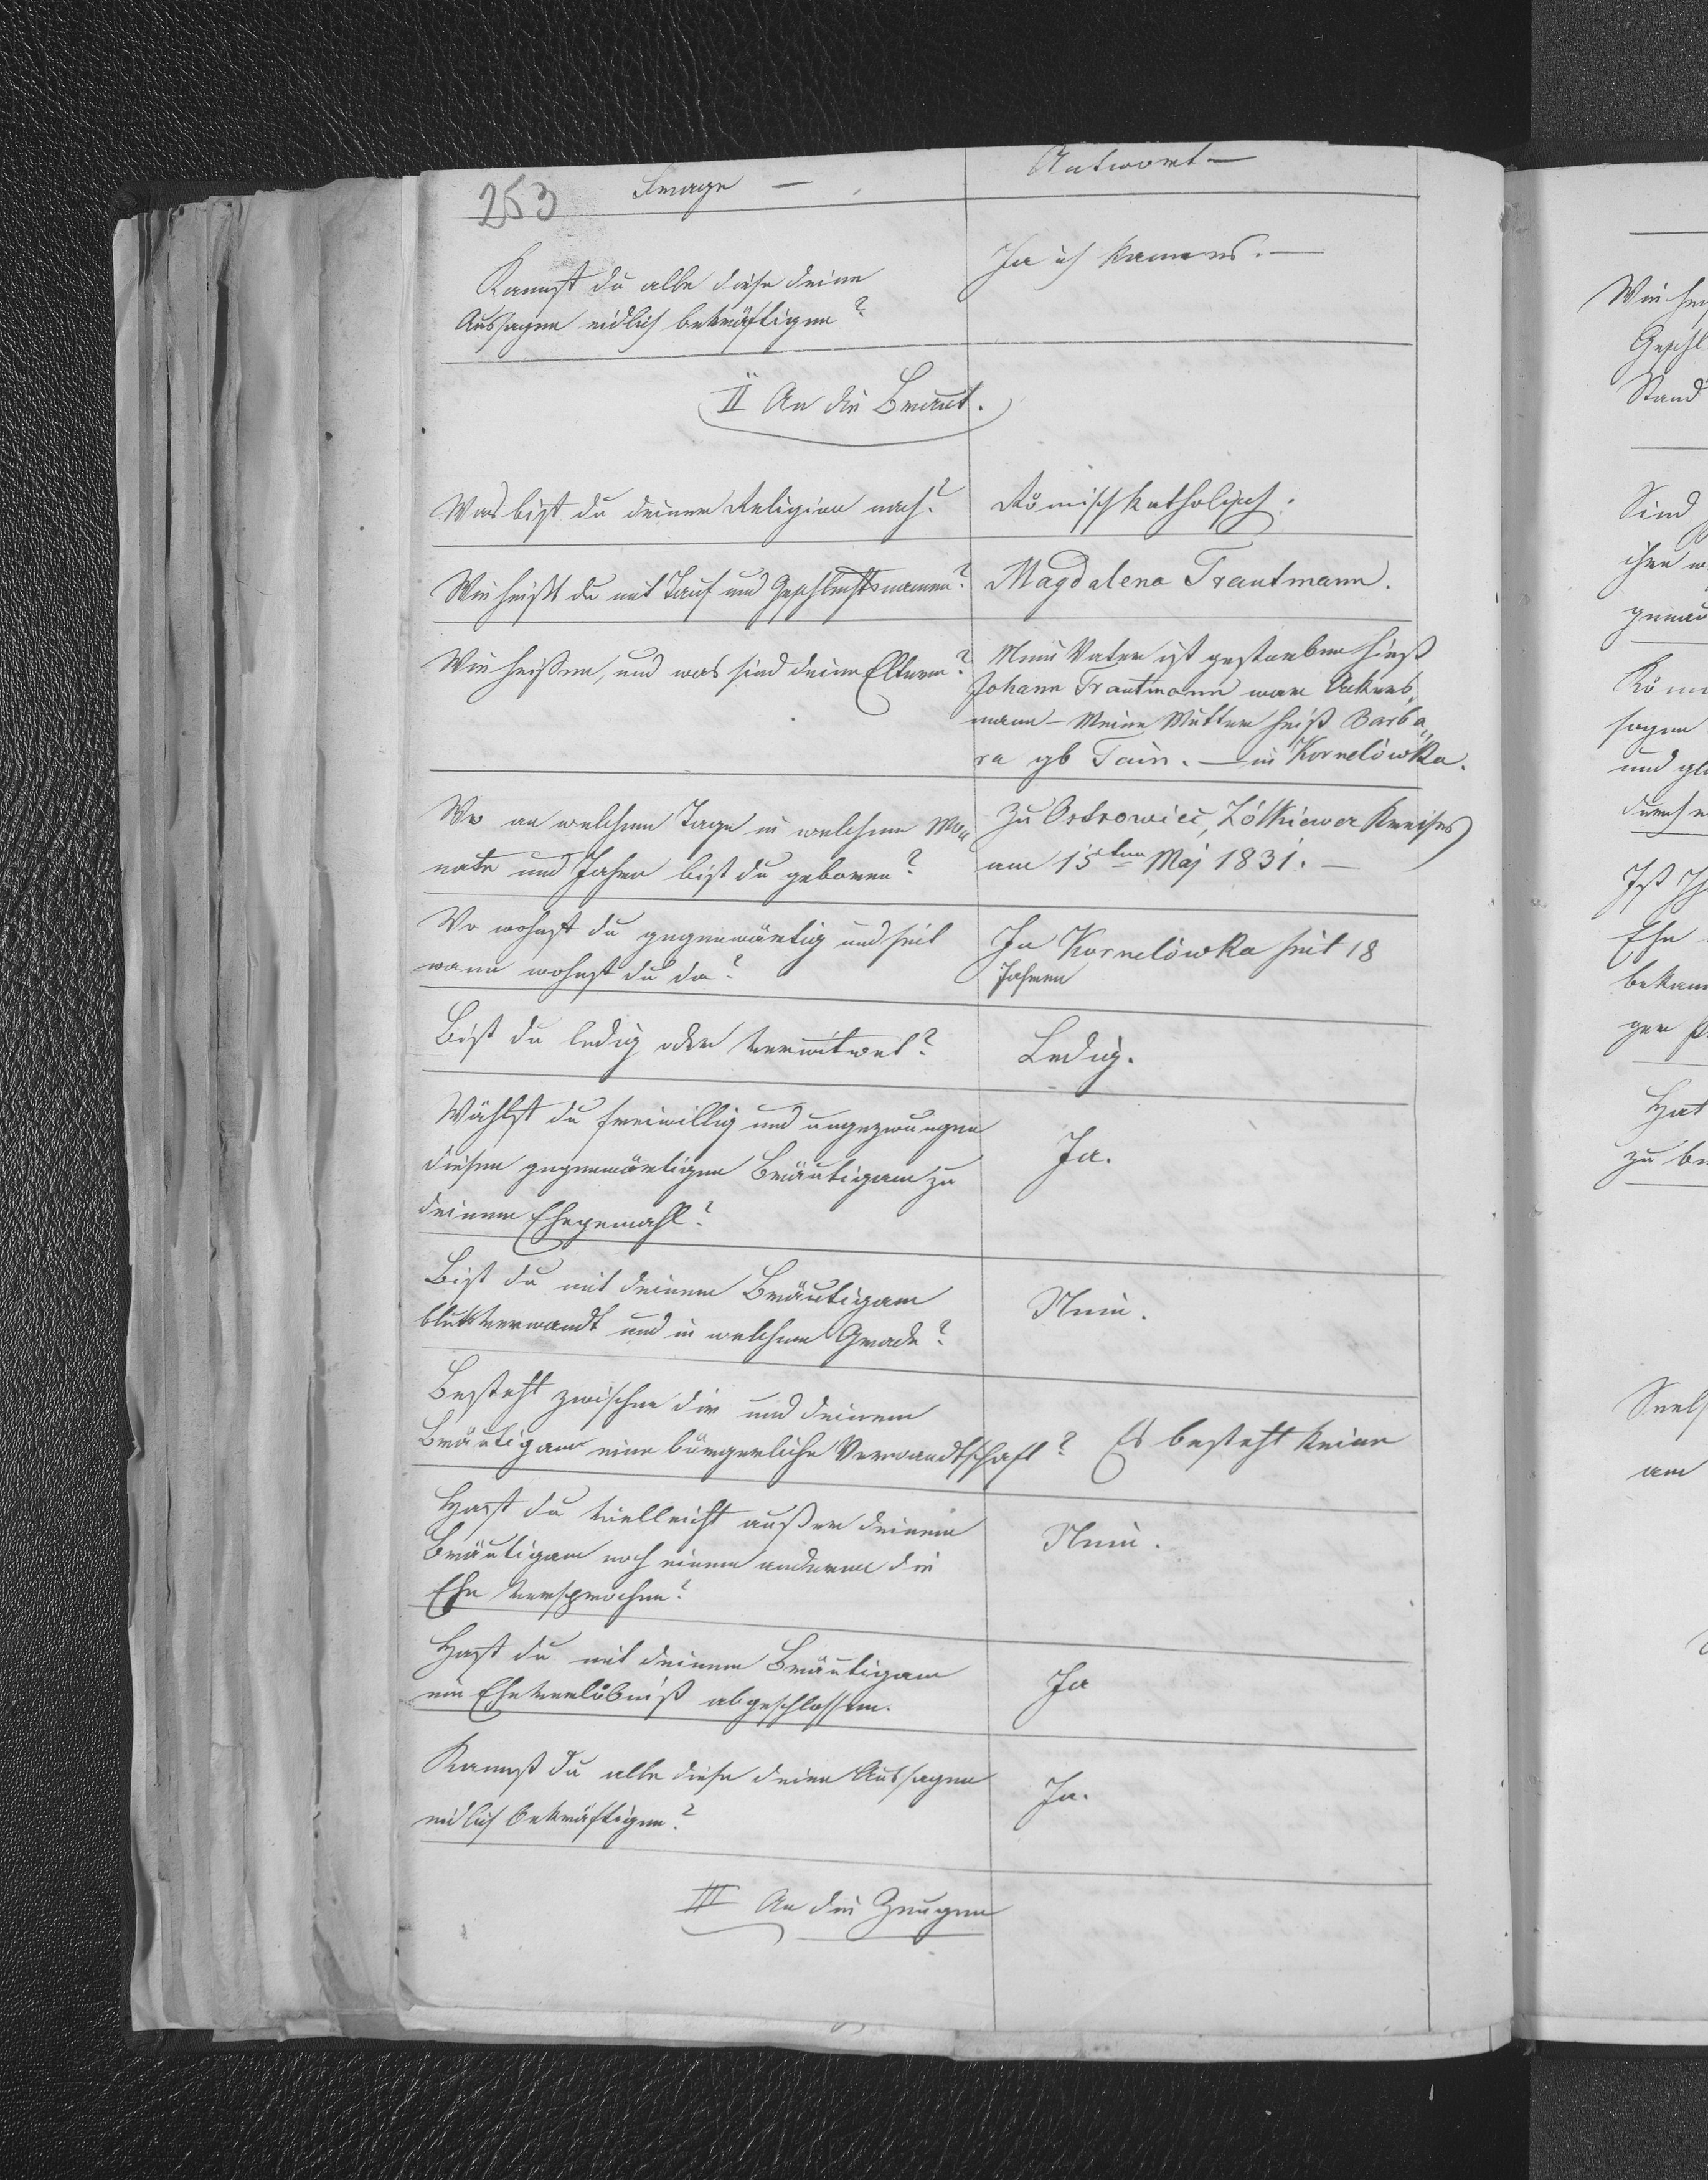 253 Frage — Antwort —
Kannst du alle diese deine
Aussagen eidlich bekräftigen?
Ja ich kann es. —
II An die Braut.
Was bist du deiner Religion nach?
Römisch katholisch.
Wie heißt du mit Tauf und Geschlechtsnamen?
Magdalena Trautmann.
Wie heißen, und was sind deine Eltern?
Mein Vater ist gestorben hieß
Johann Trautmann war Ackers,,
mann – Meine Mutter heißt Barba,,
ra gb — in Kornelówka.
Wo an welchem Tage in welchem Mo,,
nate und Jahre bist du geboren?
Zu Ostrowiec, Zółkiewer Kreises
am 15ten Maj 1831. —
Wo wohnst du gegenwärtig und seit
wann wohnst du da?
In Kornelówka seit 18
Jahren
Bist du ledig oder verwitwet?
Ledig.
Wählst du freiwillig und ungezwungen
diesen gegenwärtigen Bräutigam zu
deinem Ehegemahl?
Ja.
Bist du mit deinem Bräutigam
blutsverwandt und in welchem Grade?
Nein.
Besteht zwischen dir und deinem
Bräutigam eine bürgerliche Verwandtschaft?
Es besteht keine
Hast du vielleicht außer deinem
Bräutigam noch einem anderen die
Ehe versprochen?
Nein.
Hast du mit deinem Bräutigam
ein Eheverlöbniß abgeschlossen.
Ja
Kannst du alle diese deine Aussagen
eidlich bekräftigen?
Ja.
III An die Zeugen
Stand
Sind
und
Ehe
Hat
am